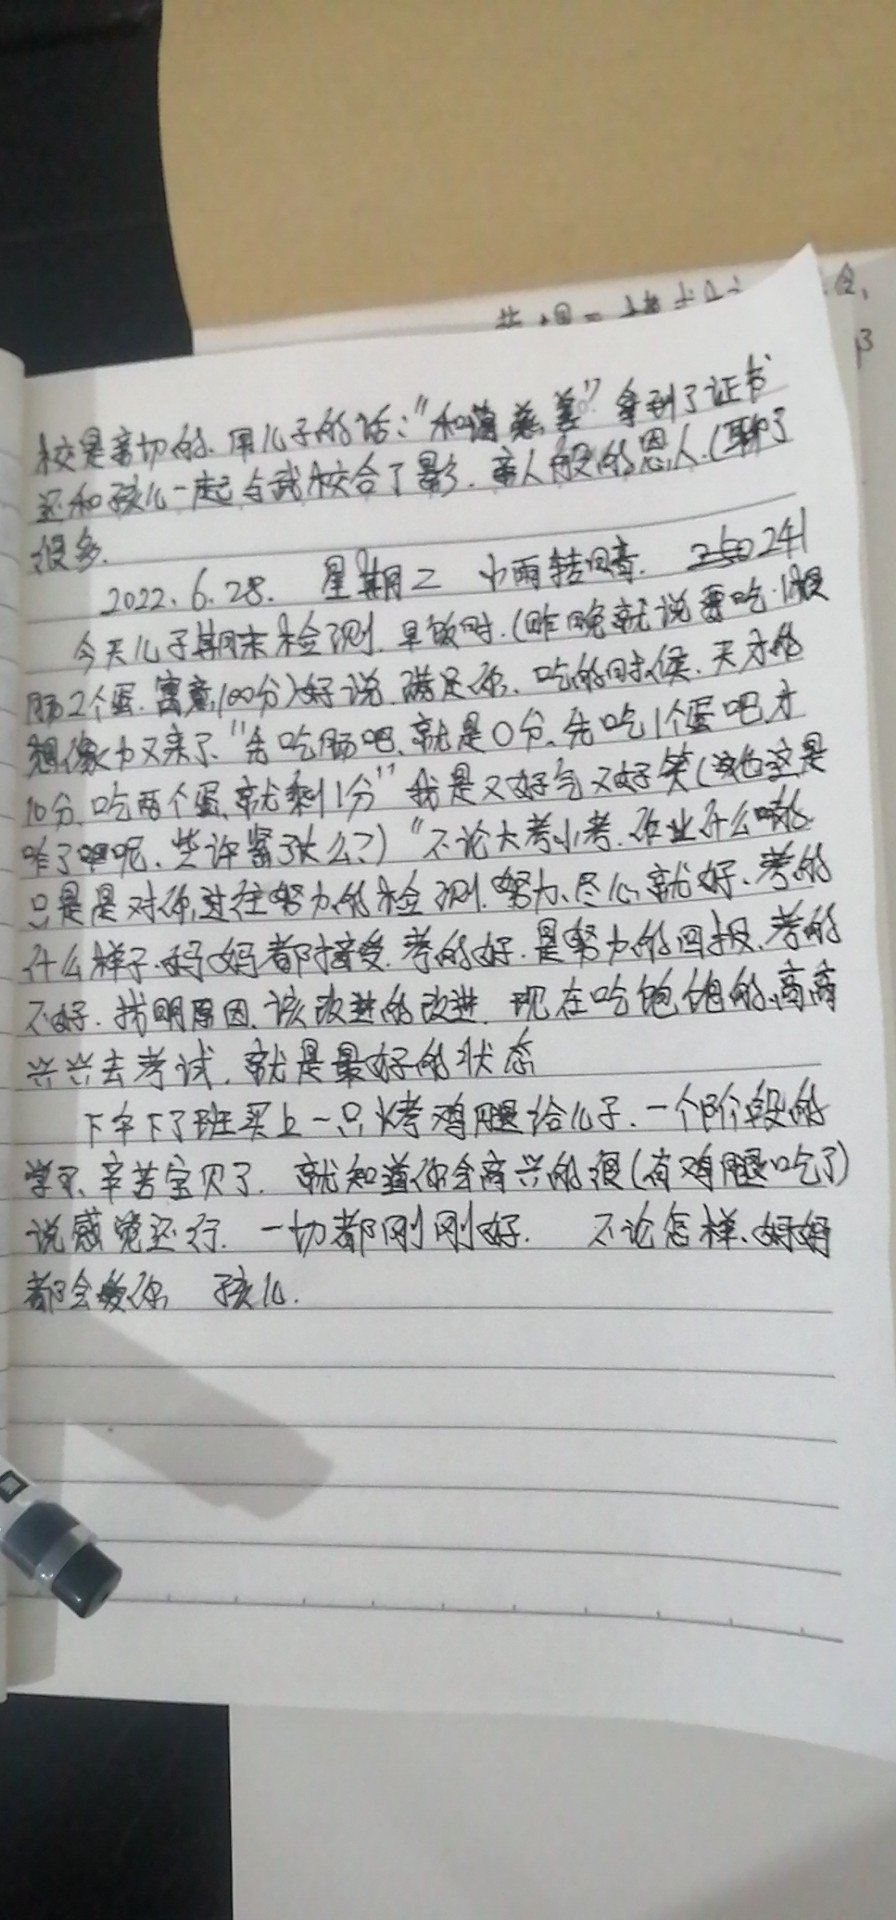 校是亲切的.用儿子的话:"和蔼慈善"拿到了证书
还和孩儿一起与武校合了影.亲人般的恩人.(聊了
很多.
2022.6.28. 星期二 小雨转阴. 241
今天儿子期末检测.早饭时.(昨晚就说要吃1根
肠2个蛋.寓意100分)好说.满足你.吃的时候.天才的
想像力又来了."先吃肠吧、就是0分.先吃1个蛋吧.才
10分.吃两个蛋、就剩1分"我是又好气又好笑(这是
咋了呢、些许紧张么?)"不论大考小考.作业什么的
只是是对你过往努力的检测.努力、尽心就好、考的
什么样子.妈妈都接受.考的好.是努力的回报.考的
不好.找明原因.该改进的改进.现在吃饱饱的、高高
兴兴去考试.就是最好的状态
下午下了班买上一只烤鸡腿给儿子.一个阶段的
学习、辛苦宝贝了.就知道你会高兴的很(有鸡腿吃了)
说感觉还行.一切都刚刚好. 不论怎样、妈妈
都会爱你 孩儿.